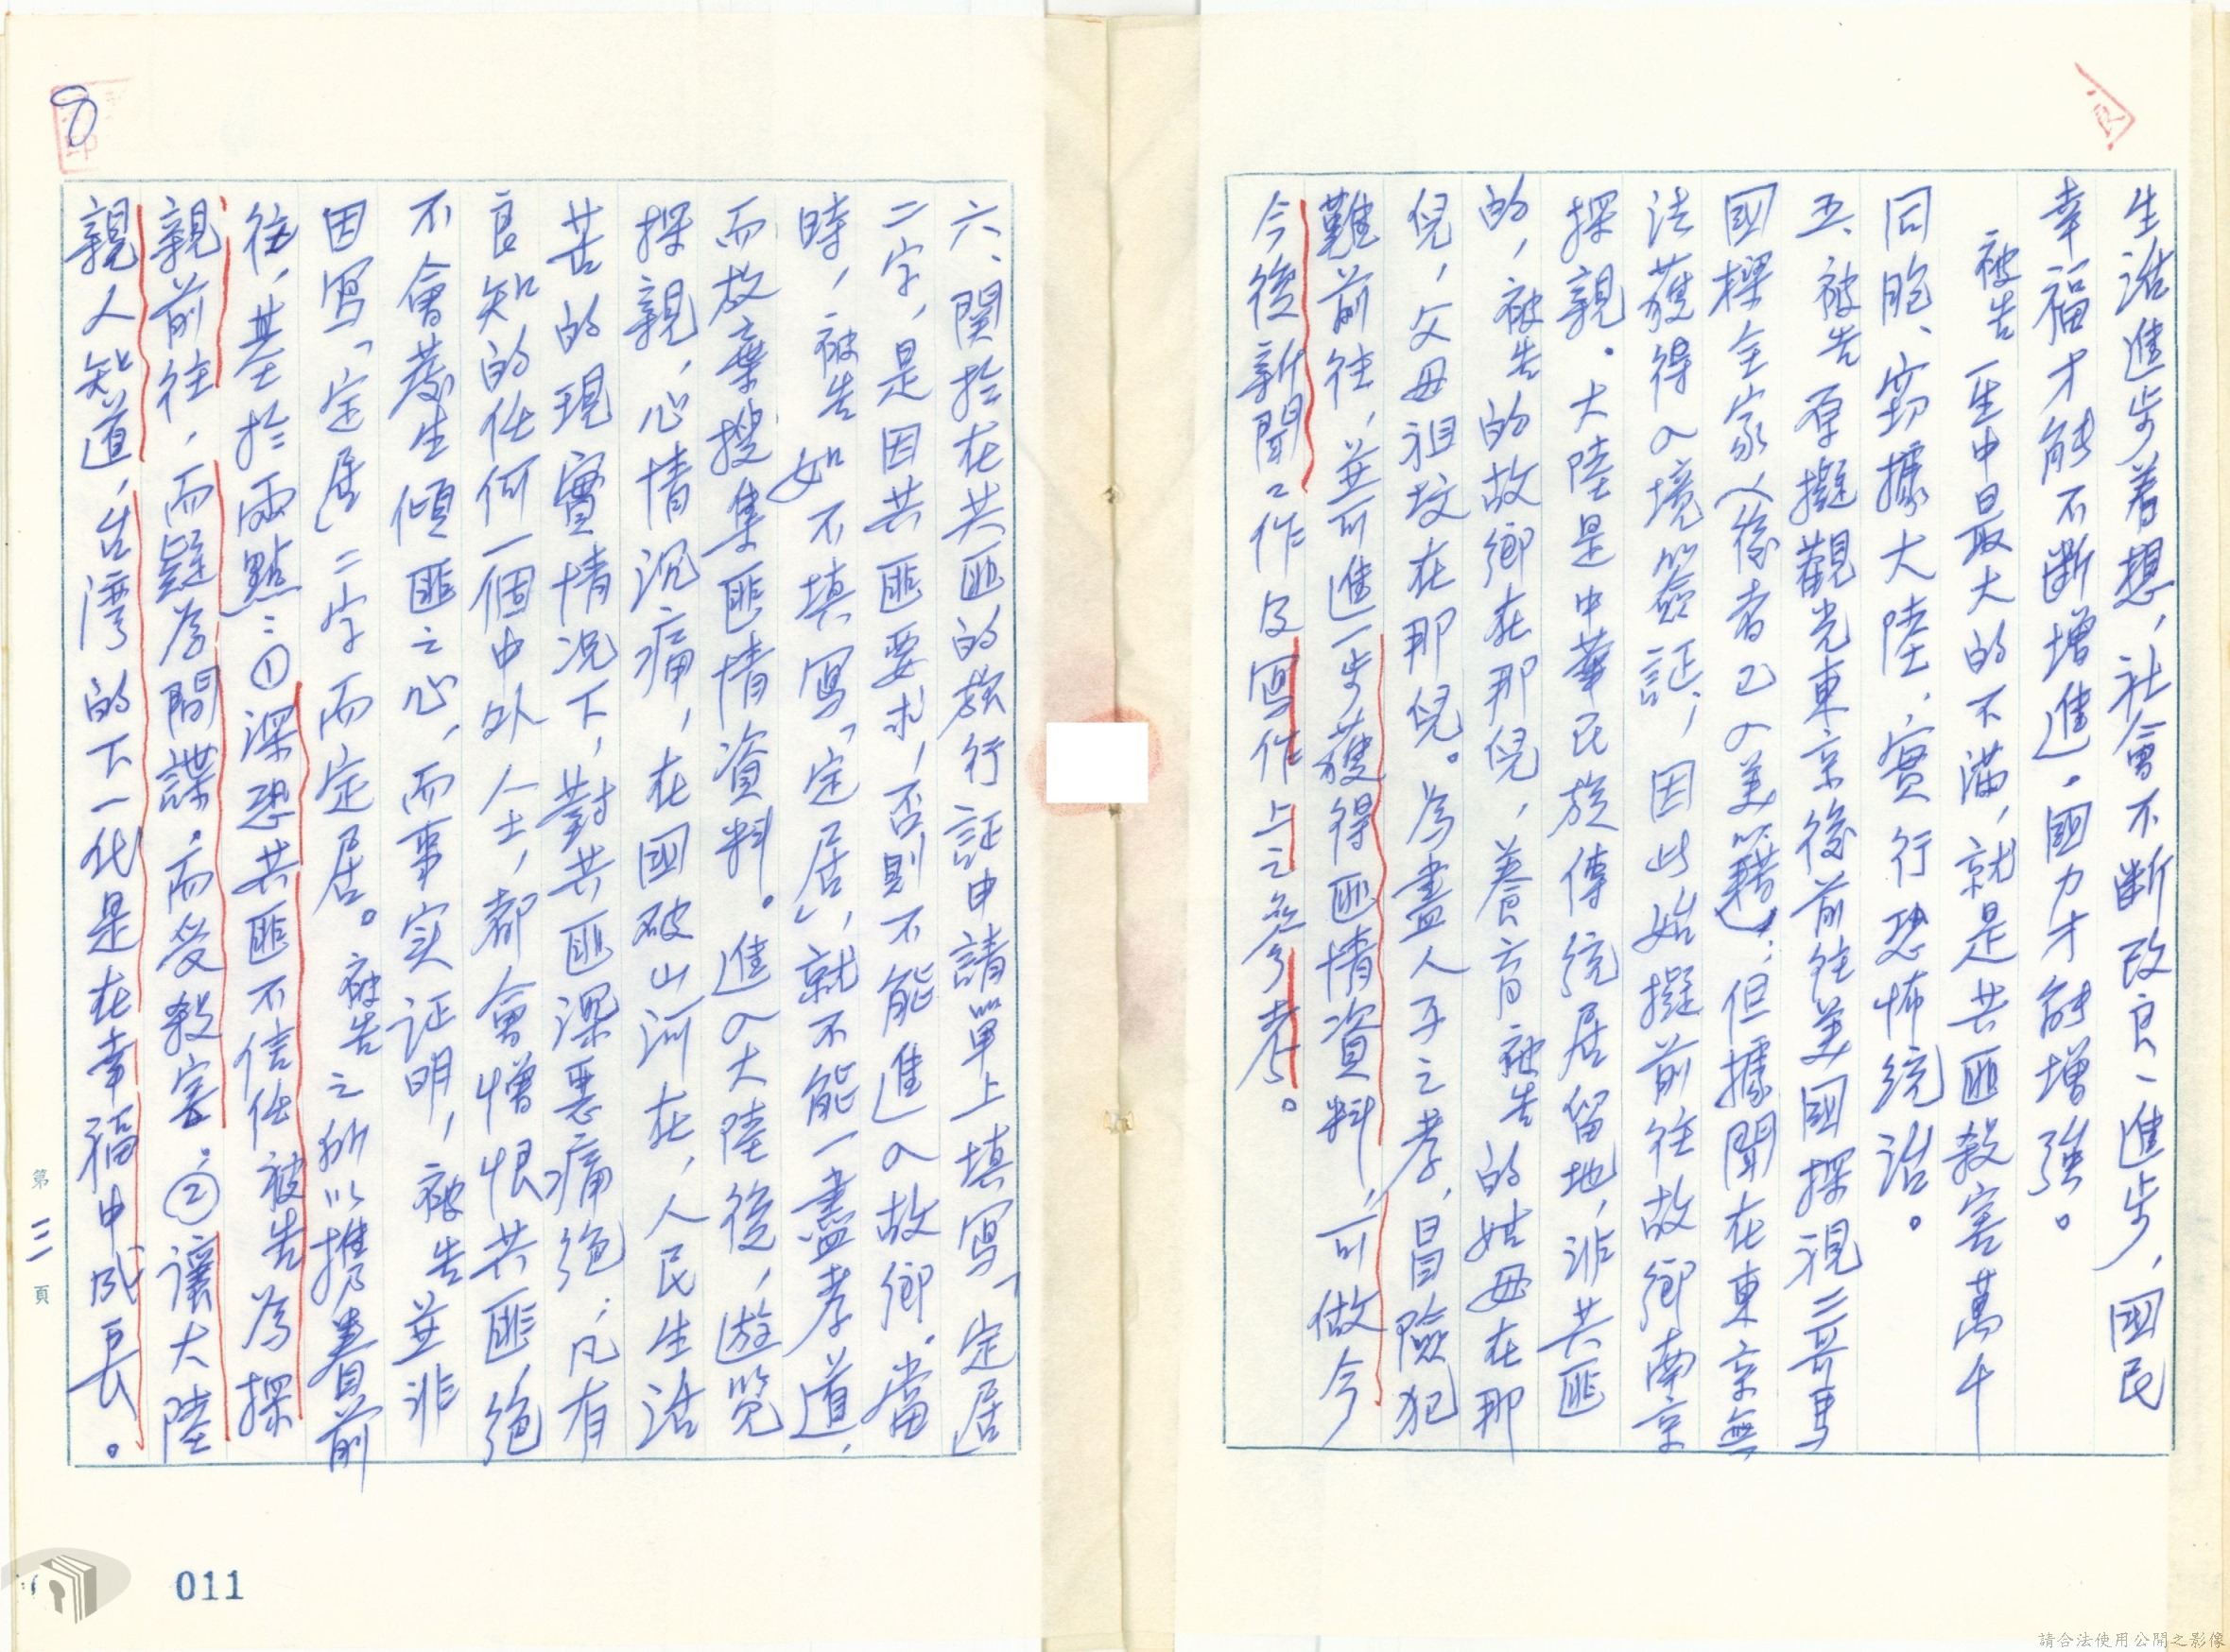 生活進步着想，社會不斷改良、進步，國民
幸福才能不斷增進。國力才能增強。
被告一生中最大的不滿，就是共匪殺害萬千
同胞、竊據大陸，實行恐怖統治。
五、被告原擬觀光東京後前往美國探視三哥馬
國樑全家（後者已入美籍）；但據聞在東京無
法獲得入境簽証，因此始擬前往故鄉南京
探親。大陸是中華民族傳統居留地，非共匪
的，被告的故鄉在那兒，養育被告的姑母在那
兒，父母祖坟在那兒。為盡人子之孝，冒險犯
難前往，並可進一步獲得匪情資料，可做今
今後新聞工作及寫作上之參考。
六、関於在共匪的旅行証申請單上填寫「定居」
二字，是因共匪要求，否則不能進入故鄉。當
時，被告如不填寫「定居」，就不能一盡孝道，
而放棄搜集匪情資料。進入大陸後，遊览
探親，心情沉痛，在國破山河在，人民生活
苦的現實情況下，對共匪深惡痛絕；凡有
良知的任何一個中外人士，都會憎恨共匪，絕
不會萎生傾匪之心，而事实证明，被告並非
因寫「定居」二字而定居。被告之所以携眷前
往，基於兩點：①深恐共匪不信任被告為探
親前往，而疑為間諜，而受殺害。②讓大陸
親人知道，台灣的下一代是在幸福中成長。
第三頁
011
請合法使用公開之影像